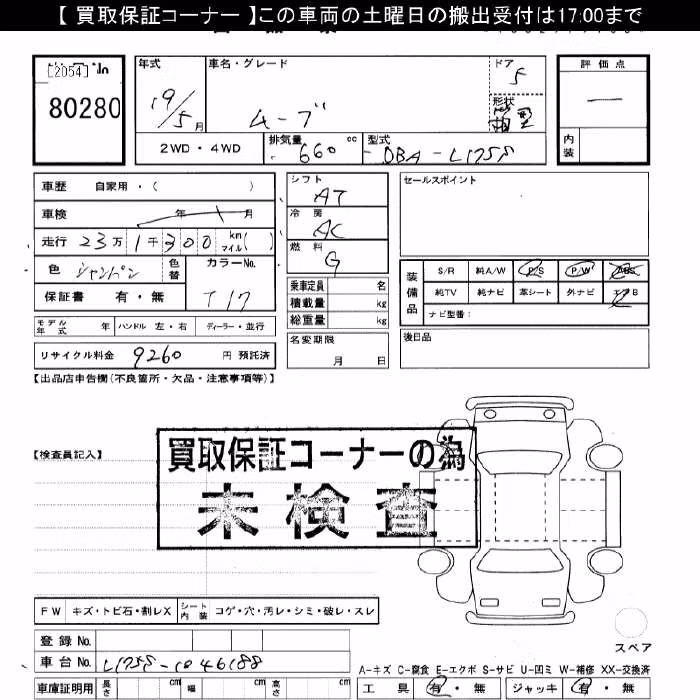 【 買取保証コーナー 】この車両の土曜日の搬出受付は17:00まで
[2054] No
80280
年式
19/5月
車名・グレード
ムーブ
ドア
5
形状
2WD・4WD
排気量
660 cc
型式
DBA-L175S
評価点
内装
車歴 自家用・( )
車検 年 月
走行 23万1千300 km マイル( )
色 シャンパン 色替
カラーNo.
T17
保証書 有・無
モデル年式 年 ハンドル 左・右 ディーラー・並行
リサイクル料金 9260 円 預託済
シフト
AT
冷房
AC
燃料
G
乗車定員 名
積載量 kg
総重量 kg
名変期限
月 日
セールスポイント
装備品
S/R 純A/W P/S P/W ABS
純TV 純ナビ 革シート 外ナビ エアB
ナビ型番:
後日品
【出品店申告欄(不良箇所・欠品・注意事項等)】
【検査員記入】
買取保証コーナーの為
未検査
FW キズ・トビ石・割レX シート内装 コゲ・穴・汚レ・シミ・破レ・スレ
登録 No.
車台 No. L175S-1046188
車庫証明用 長さ cm 幅 cm 高さ cm
スペア
A-キズ C-腐食 E-エクボ S-サビ U-凹ミ W-補修 XX-交換済
工具 有・無 ジャッキ 有・無